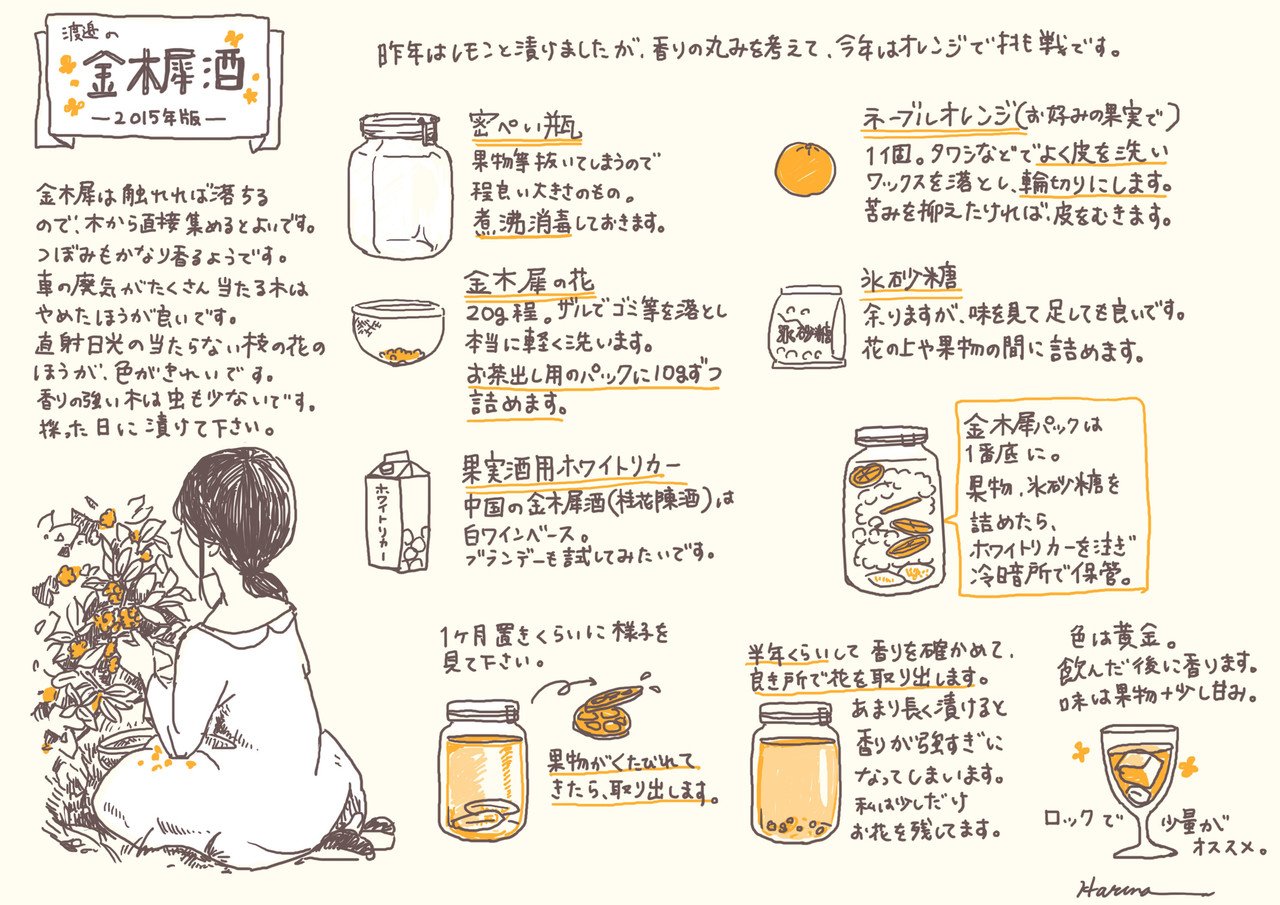 渡邊の
金木犀酒
—2015年版—
昨年はレモンと漬けましたが、香りの丸みを考えて、今年はオレンジで挑戦です。
金木犀は触れれば落ちる
ので、木から直接集めるとよいです。
つぼみもかなり香るようです。
車の廃気がたくさん当たる木は
やめたほうが良いです。
直射日光の当たらない枝の花の
ほうが、色がきれいです。
香りの強い木は虫も少ないです。
採った日に漬けて下さい。
密ぺい瓶
果物等抜いてしまうので
程良い大きさのもの。
煮沸消毒しておきます。
金木犀の花
20g程。ザルでゴミ等を落とし
本当に軽く洗います。
お茶出し用のパックに10gずつ
詰めます。
果実酒用ホワイトリカー
中国の金木犀酒(桂花陳酒)は
白ワインベース。
ブランデーも試してみたいです。
ホワイトリカー
ネーブルオレンジ(お好みの果実で)
1個。タワシなどでよく皮を洗い
ワックスを落とし、輪切りにします。
苦みを抑えたければ、皮をむきます。
氷砂糖
余りますが、味を見て足しても良いです。
花の上や果物の間に詰めます。
氷砂糖
金木犀パックは
1番底に。
果物、氷砂糖を
詰めたら、
ホワイトリカーを注ぎ
冷暗所で保管。
1ヶ月置きくらいに様子を
見て下さい。
果物がくたびれて
きたら、取り出します。
半年くらいして香りを確かめて、
良き所で花を取り出します。
あまり長く漬けると
香りが強すぎに
なってしまいます。
私は少しだけ
お花を残してます。
色は黄金。
飲んだ後に香ります。
味は果物+少し甘み。
ロックで少量が
オススメ。
Haruna